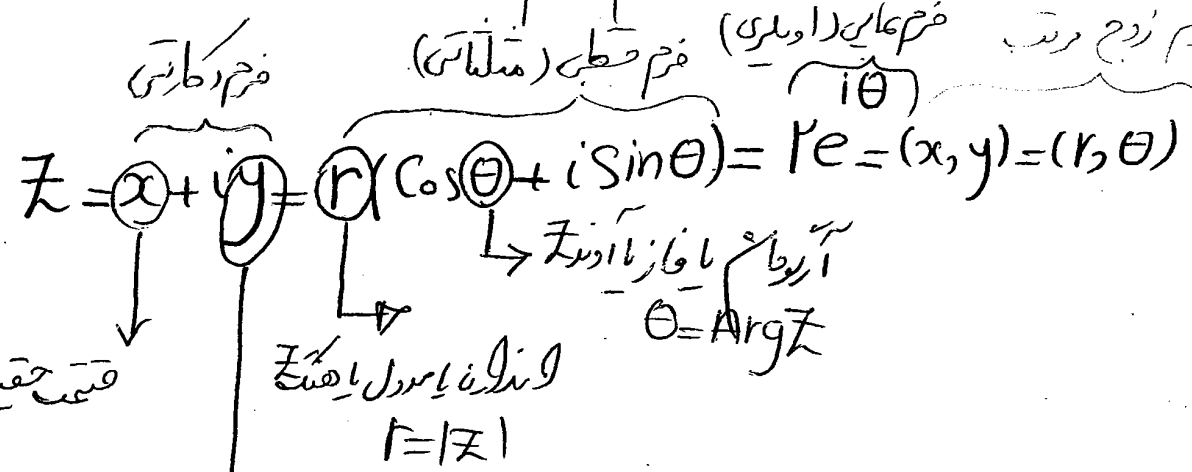 فرم دکارتی فرم قطبی (مثلثاتی) فرم نمایی (اویلری) زوج مرتب
Z = x + iy = r(Cosθ + i Sinθ) = re^{iθ} = (x, y) = (r, θ)
آرگومان یا فاز یا آوند Z
θ = Arg Z
قسمت
اندازه یا مدول یا هنگ Z
r = |Z|